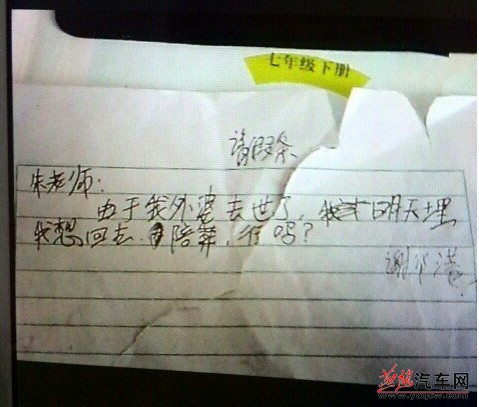 七年级下册
请假条
朱老师：
由于我外婆去世了，明天埋
我想回去陪葬，行吗？
谢
汽车网